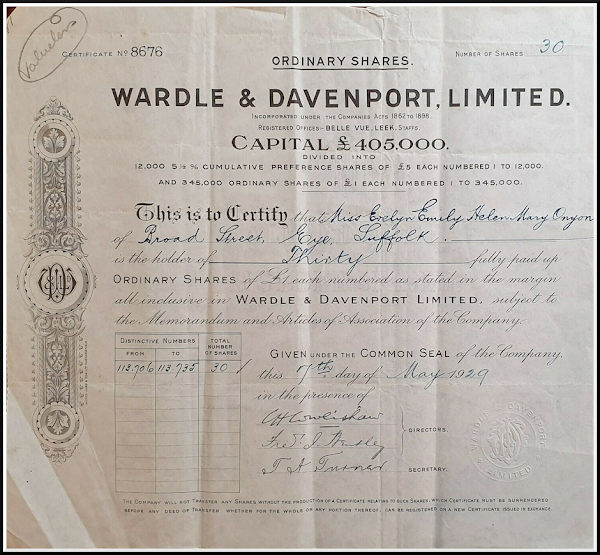 Valueless
CERTIFICATE Nº 8676
NUMBER OF SHARES 30
ORDINARY SHARES.
WARDLE & DAVENPORT, LIMITED.
INCORPORATED UNDER THE COMPANIES ACTS 1862 TO 1898.
REGISTERED OFFICES:- BELLE VUE, LEEK, STAFFS.
CAPITAL £405.000.
DIVIDED INTO
12,000 5½% CUMULATIVE PREFERENCE SHARES OF £5 EACH NUMBERED 1 TO 12,000.
AND 345,000 ORDINARY SHARES OF £1 EACH NUMBERED 1 TO 345,000.
This is to Certify that Miss Evelyn Emily Helen Mary Onyon
of Broad Street, Eye, Suffolk.
is the holder of Thirty fully paid up
ORDINARY SHARES of £1 each numbered as stated in the margin
all inclusive in WARDLE & DAVENPORT LIMITED, subject to
the Memorandum and Articles of Association of the Company.
DISTINCTIVE NUMBERS
FROM TO
TOTAL NUMBER OF SHARES
113,706 113,735 30
GIVEN UNDER THE COMMON SEAL of the Company.
this 17th day of May 1929
in the presence of
DIRECTORS.
T A Turner
SECRETARY.
WARDLE & DAVENPORT
LIMITED
THE COMPANY WILL NOT TRANSFER ANY SHARES WITHOUT THE PRODUCTION OF A CERTIFICATE RELATING TO SUCH SHARES, WHICH CERTIFICATE MUST BE SURRENDERED
BEFORE ANY DEED OF TRANSFER WHETHER FOR THE WHOLE OR ANY PORTION THEREOF, CAN BE REGISTERED OR A NEW CERTIFICATE ISSUED IN EXCHANGE.